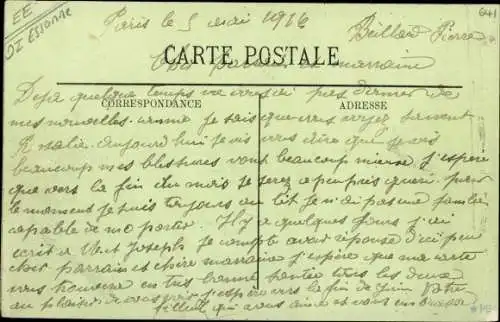 EE
OZ ESSONNE
641
Paris le 5 mai 1916
Beillard Pierre
CARTE POSTALE
Cher parrain et marraine
CORRESPONDANCE
ADRESSE
Deja quelque temps ne vous ai pas donner de
mes nouvelles. comme je sais que vous voyez souvent
Rosalie. aujourd hui je vais vous dire que je vais
beaucoup mes blessures vont beaucoup mieux. j'espère
que vers la fin du mois je serez a peu pres queri. pour
le moment je suis toujours au lit je n'ai pas une jambe
capable de me porter. Il y a quelques jours j'ai
ecrit a Joseph je compte avoir réponse d'ici peu
cher parrain et chère marraine j'espère que ma carte
vous trouvera en tres bonne santée tous les deux
au plaisir de vous voir j'espère vers la fin de juin Votre
filleul qui vous aime et vous embrasse